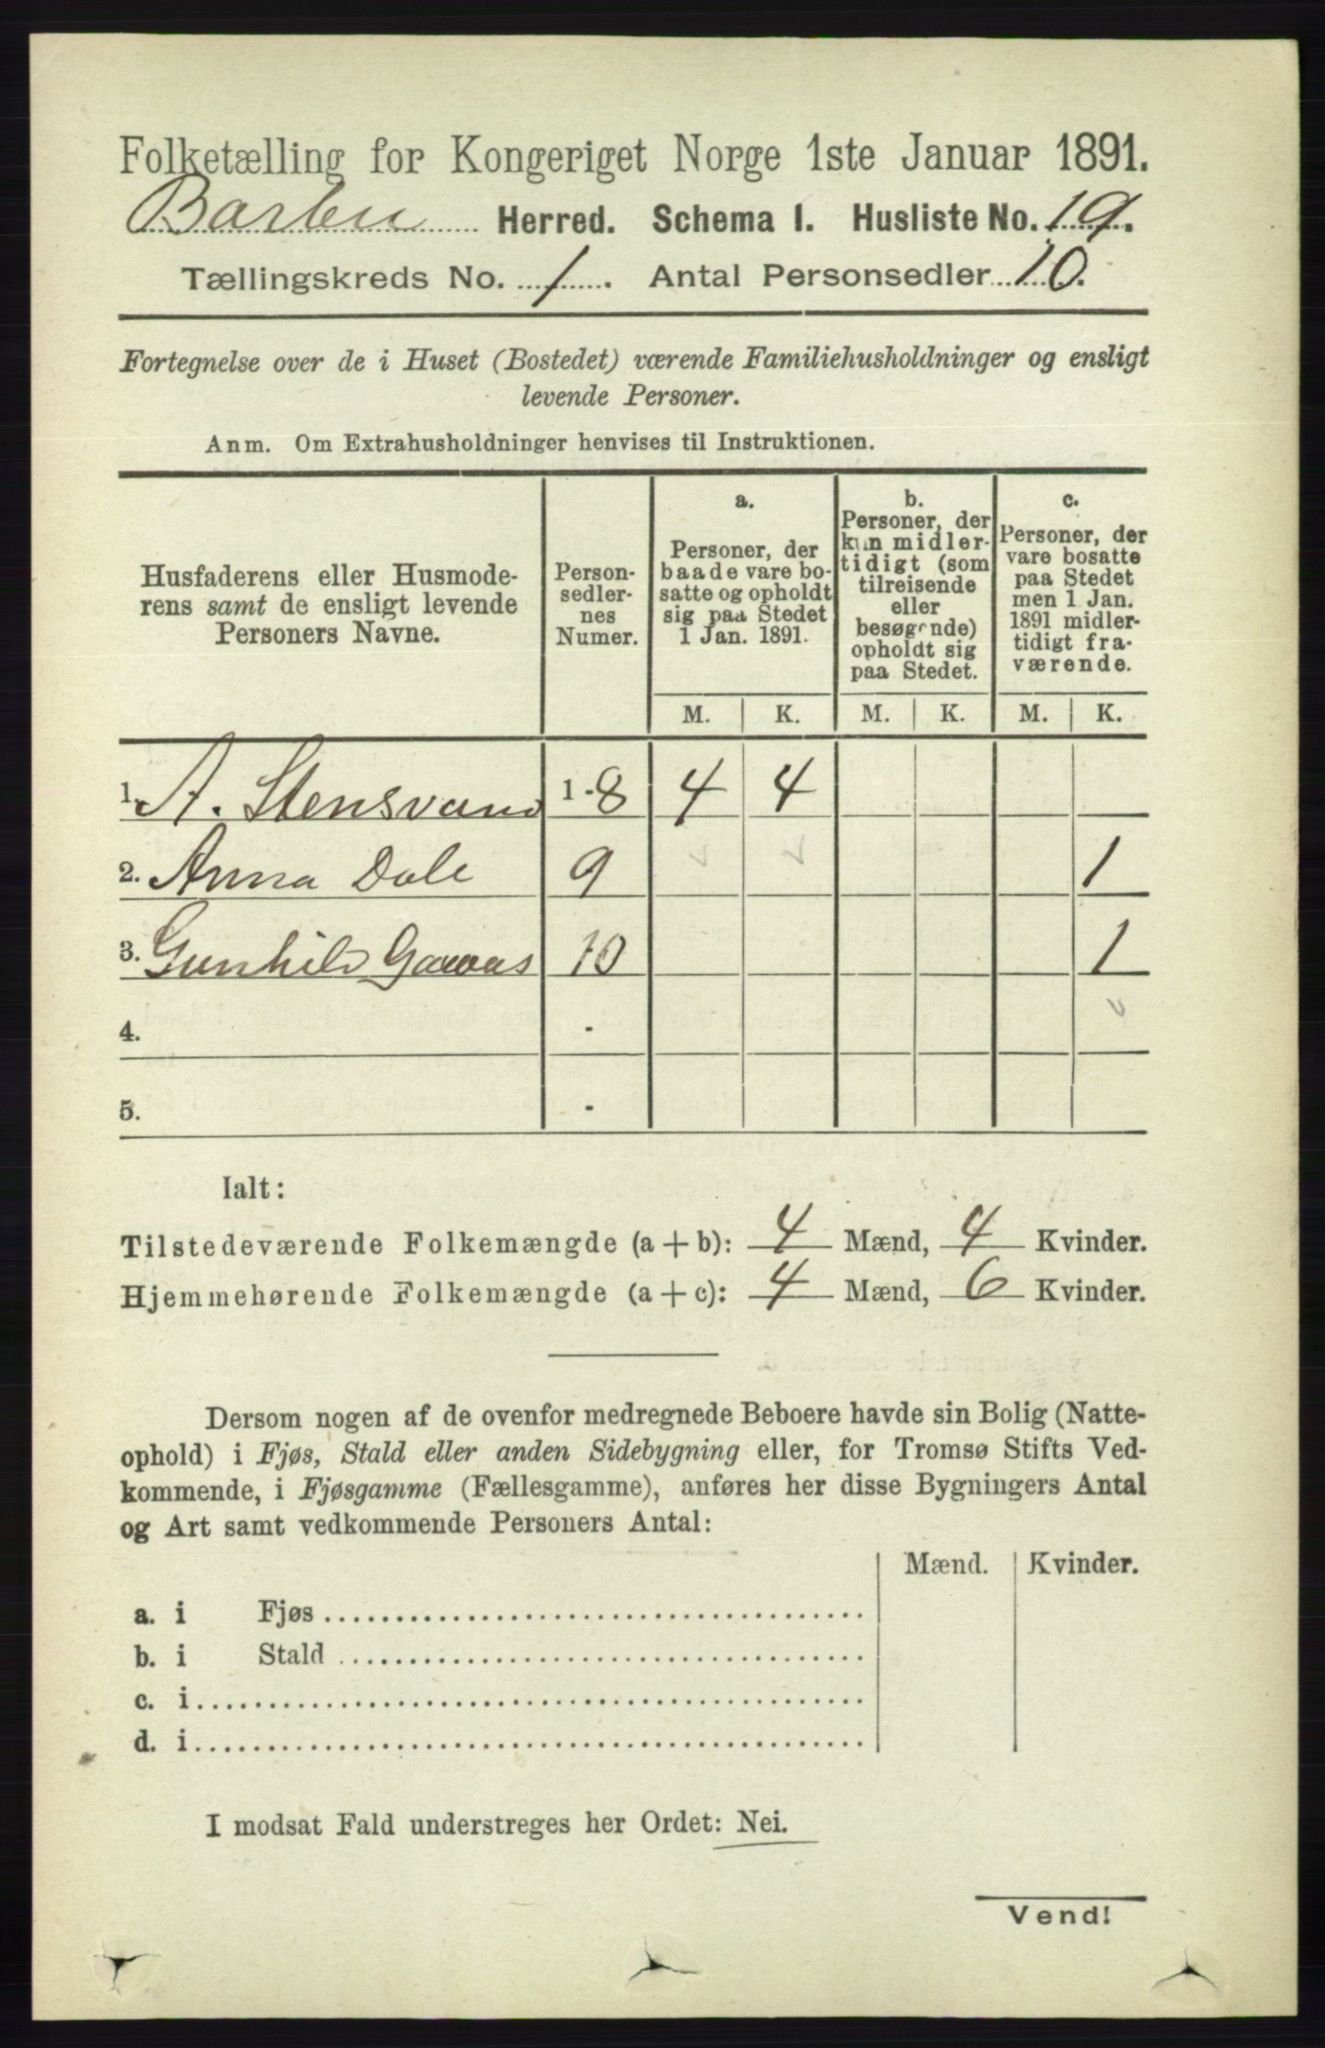 Folketælling for Kongeriget Norge 1ste Januar 1891.
Barbu Herred. Schema I. Husliste No. 19.
Tællingskreds No. 1. Antal Personsedler 10.
Fortegnelse over de i Huset (Bostedet) værende Familiehusholdninger og ensligt
levende Personer.
Anm. Om Extrahusholdninger henvises til Instruktionen.
Husfaderens eller Husmode-
rens samt de ensligt levende
Personers Navne.
Person-
sedler-
nes
Numer.
a.
Personer, der
baade vare bo-
satte og opholdt
sig paa Stedet
1 Jan. 1891.
b.
Personer, der
kun midler-
tidigt (som
tilreisende
eller
besøgende)
opholdt sig
paa Stedet.
c.
Personer, der
vare bosatte
paa Stedet
men 1 Jan.
1891 midler-
tidigt fra-
værende.
M. K. M. K. M. K.
1. A. Stensvand 1-8 4 4
2. Anna Dale 9 1
3. Gunhild 10 1
4. -
5. -
Ialt:
Tilstedeværende Folkemængde (a + b): 4 Mænd, 4 Kvinder.
Hjemmehørende Folkemængde (a + c): 4 Mænd, 6 Kvinder.
Dersom nogen af de ovenfor medregnede Beboere havde sin Bolig (Natte-
ophold) i Fjøs, Stald eller anden Sidebygning eller, for Tromsø Stifts Ved-
kommende, i Fjøsgamme (Fællesgamme), anføres her disse Bygningers Antal
og Art samt vedkommende Personers Antal:
Mænd. Kvinder.
a. i Fjøs
b. i Stald
c. i
d. i
I modsat Fald understreges her Ordet: Nei.
Vend!